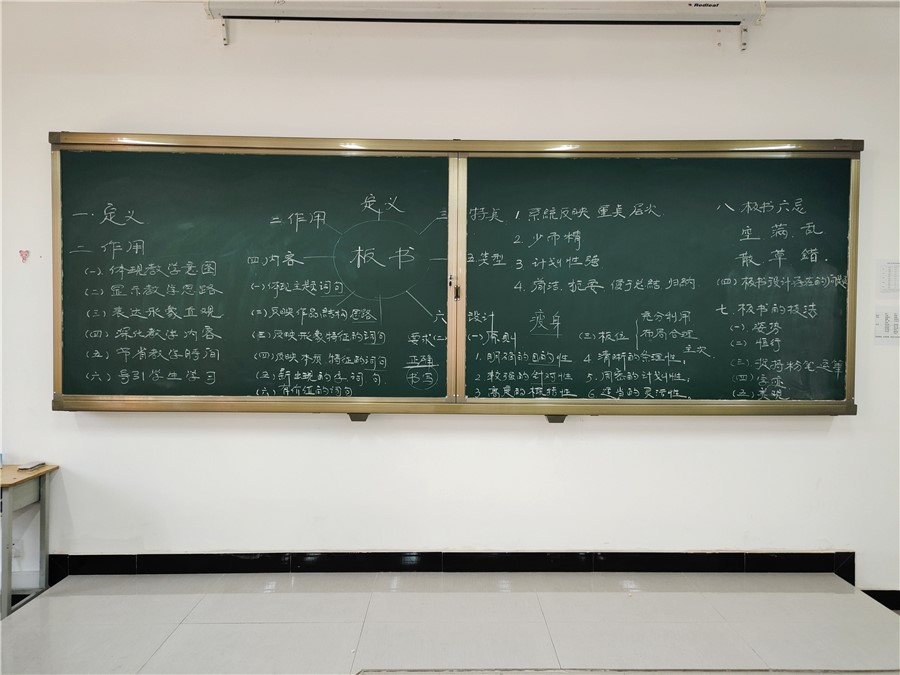 Redleaf
一.定义
二作用
(一).体现教学意图
(二)显示教学思路
(三)表达形象直观
(四)深化教学内容
(五)节省教学时间
(六)导引学生学习
定义
二作用
板书
三
特点
(四)内容
五类型
六
设计
(一)
主题词句
(二)反映作品结构思路
(三)反映形象特征的词句
(四)反映本质特征的词句
(五)新出现的字词句.
(六)有价值的词句
要求(二)
正确
书写
1 系统反映 重点 层次.
2.少而精
3 计划性强
4.简洁.扼要 便于总结.归纳
(一)原则
1.明确的目的性
2.较强的针对性
3 高度的概括性
(三)板位
充分利用
布局合理
主次
4 清晰的条理性;
5.周密的计划性;
6 适当的灵活性.
八 板书六忌
空.满.乱
散 草 错.
(四)板书设计存在的问题
七.板书的技法
(一)姿势
(二)
(三)
粉笔
(四)
(五)美观